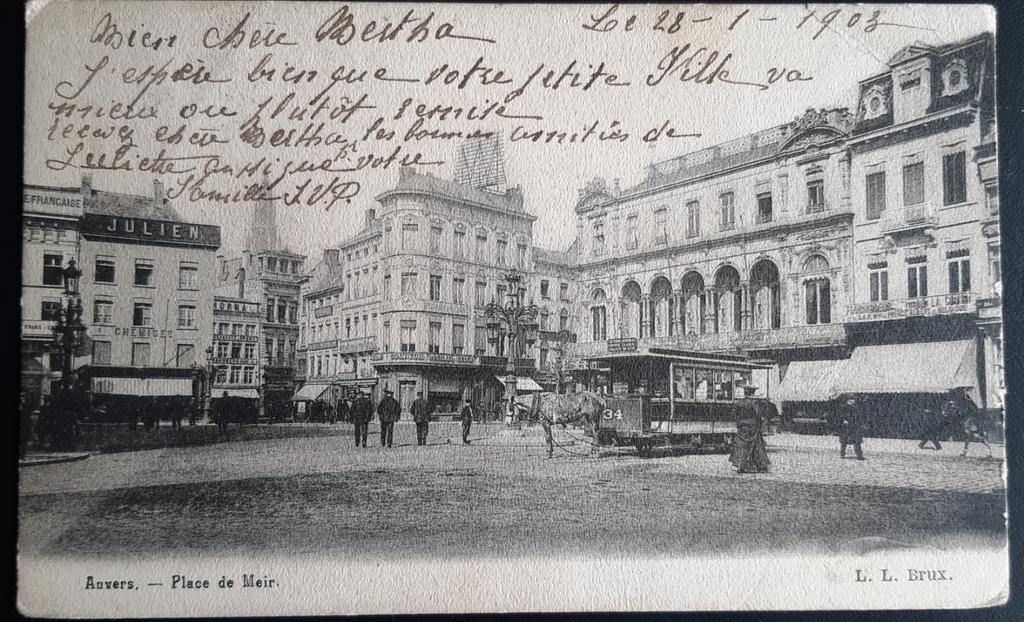 Le 28 - 1 - 1903
Bien chère Bertha
J'espère bien que votre petite Fille va
mieux ou plutôt remise
recevez chère Bertha, les bonnes amitiés de
Juliette ansique votre
Famille S.V.P.
E FRANÇAISE
JULIEN
CHEMISES
34
Anvers. — Place de Meir.
L. L. Brux.